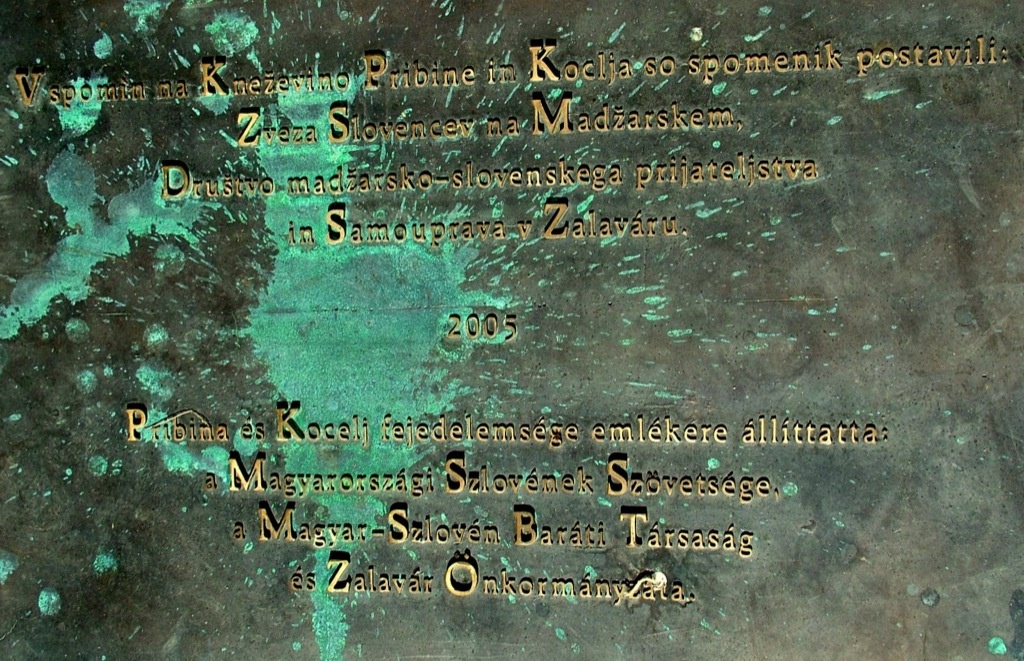 V spomin na Kneževino Pribine in Koclja so spomenik postavili:
Zveza Slovencev na Madžarskem,
Društvo madžarsko-slovenskega prijateljstva
in Samouprava v Zalaváru.
2005
Pribina és Kocelj fejedelemsége emlékére állíttatta:
a Magyarországi Szlovének Szövetsége,
a Magyar-Szlovén Baráti Társaság
és Zalavár Önkormányzata.